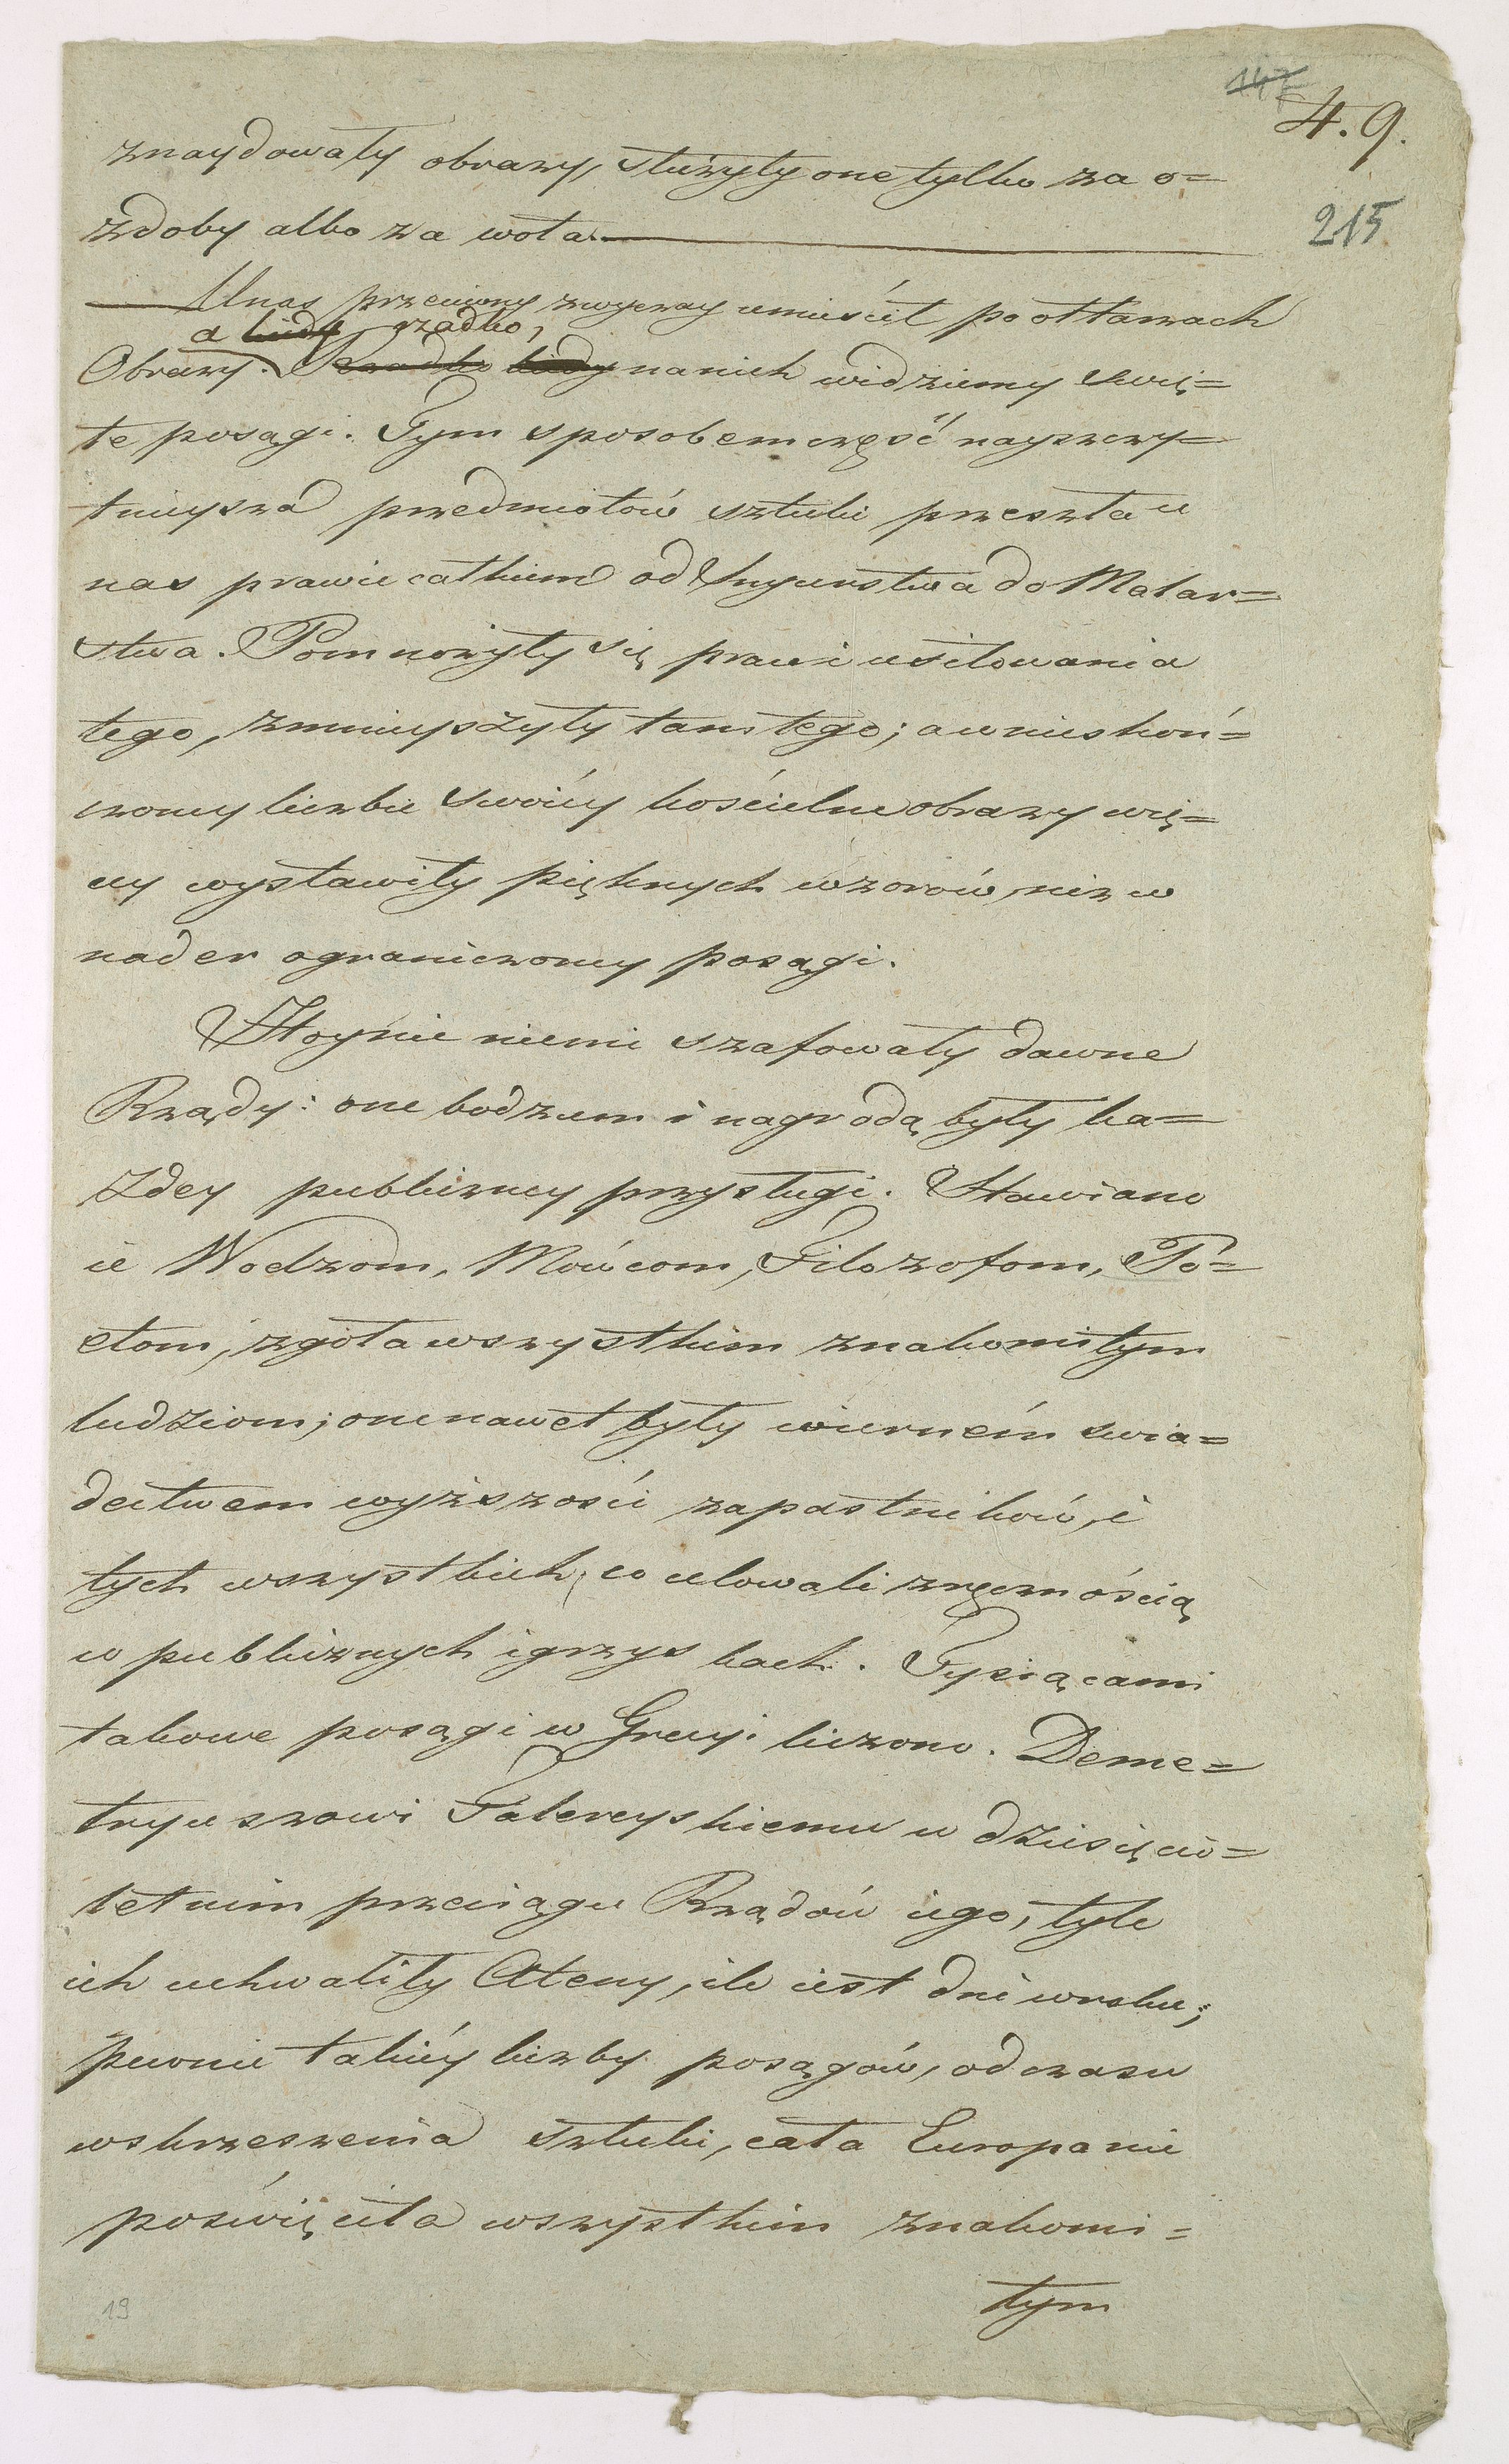 147
4. 9.
215
znaydowały obrazy, służyły one tylko za o=
zdoby albo za wota.
U nas przeciwny zwyczay umieścił po ołtarzach
a rzadko,
Obrazy. Rzadko kiedy na nich widziemy świę=
te posągi. Tym sposobem część nayzwy=
tnieysza przedmiotów sztuki przeszła u
nas prawie całkiem od Snycerstwa do Malar=
stwa. Pomnożyły się prawie usiłowania
tego, zmnieyszyły tamtego; a w nieskoń=
czoney liczbie swoiéy kościelne obrazy wię=
cey wystawiły pięknych wzorów, niż w
nader ograniczoney posągi.
Hoynie niemi szafowały dawne
Rządy: one bodzcem i nagrodą były ka=
żdey publiczney przysługi. Stawiano
ie Wodzom, Mówcom, Filozofom, Po=
etom, zgoła wszystkim znakomitym
ludziom; one nawet były wierném świa=
dectwem wyższości zapaśników, i
tych wszystkich, co celowali zręcznością
w publicznych igrzyskach. Tysiącami
takowe posągi w Grecyi liczono. Deme=
tryuszowi Falereyskiemu w dziesięcio=
letnim przeciągu Rządów iego, tyle
ich uchwaliły Ateny, ile iest dni w roku;
pewnie takiéy liczby posągów, od czasu
wskrzeszenia sztuki, cała Europa nie
poświęciła wszystkim znakomi=
tym
19